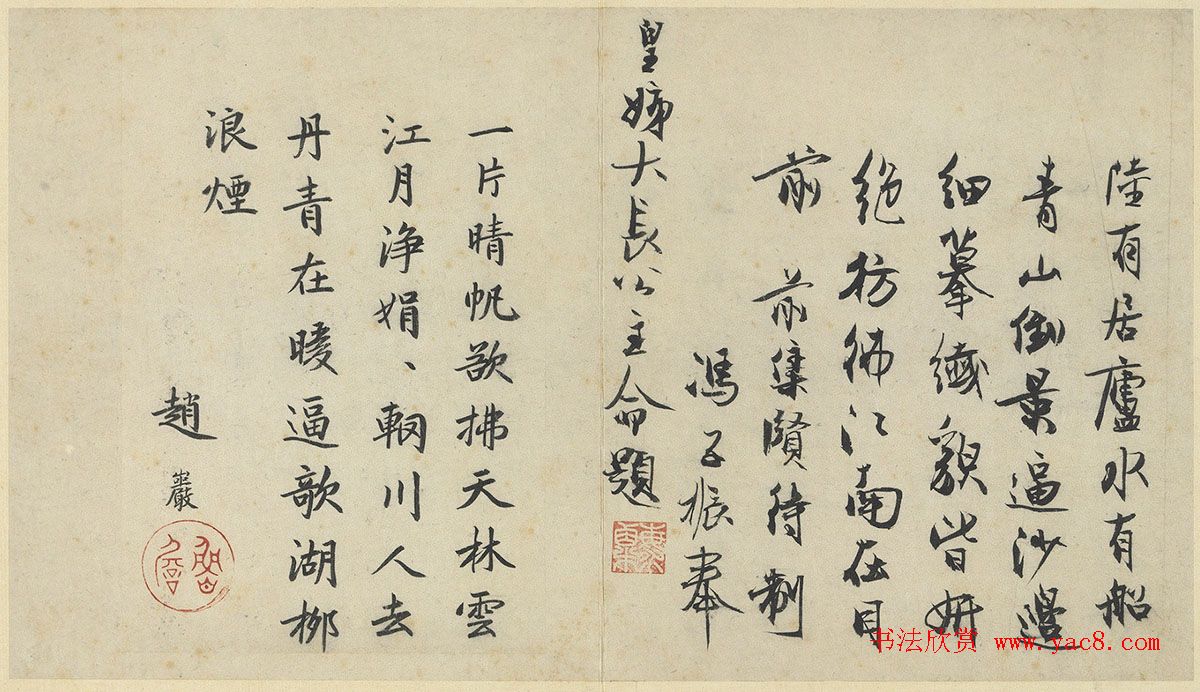 陸有居廬水有船
青山倒景逼沙邊
細摹纖貌皆妍
絶彷彿江南在目
前　前集賢待制
馮子振奉
皇姊大長公主命題
一片晴帆欲拂天林雲
江月浄娟、輞川人去
丹青在暖逼歌湖柳
浪煙
趙
巖
书法欣赏 www.yac8.com